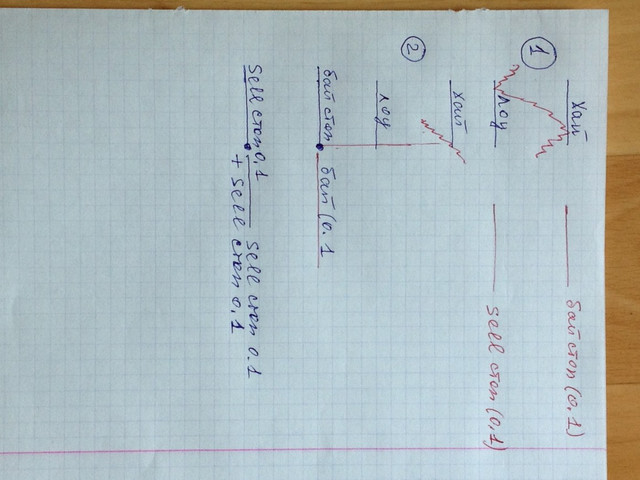 хай бай стоп (0,1)
1
лоу sell стоп (0,1)
хай
2
лоу
бай стоп бай (0.1
Sell стоп 0,1 sell стоп 0.1
+ sell стоп 0,1